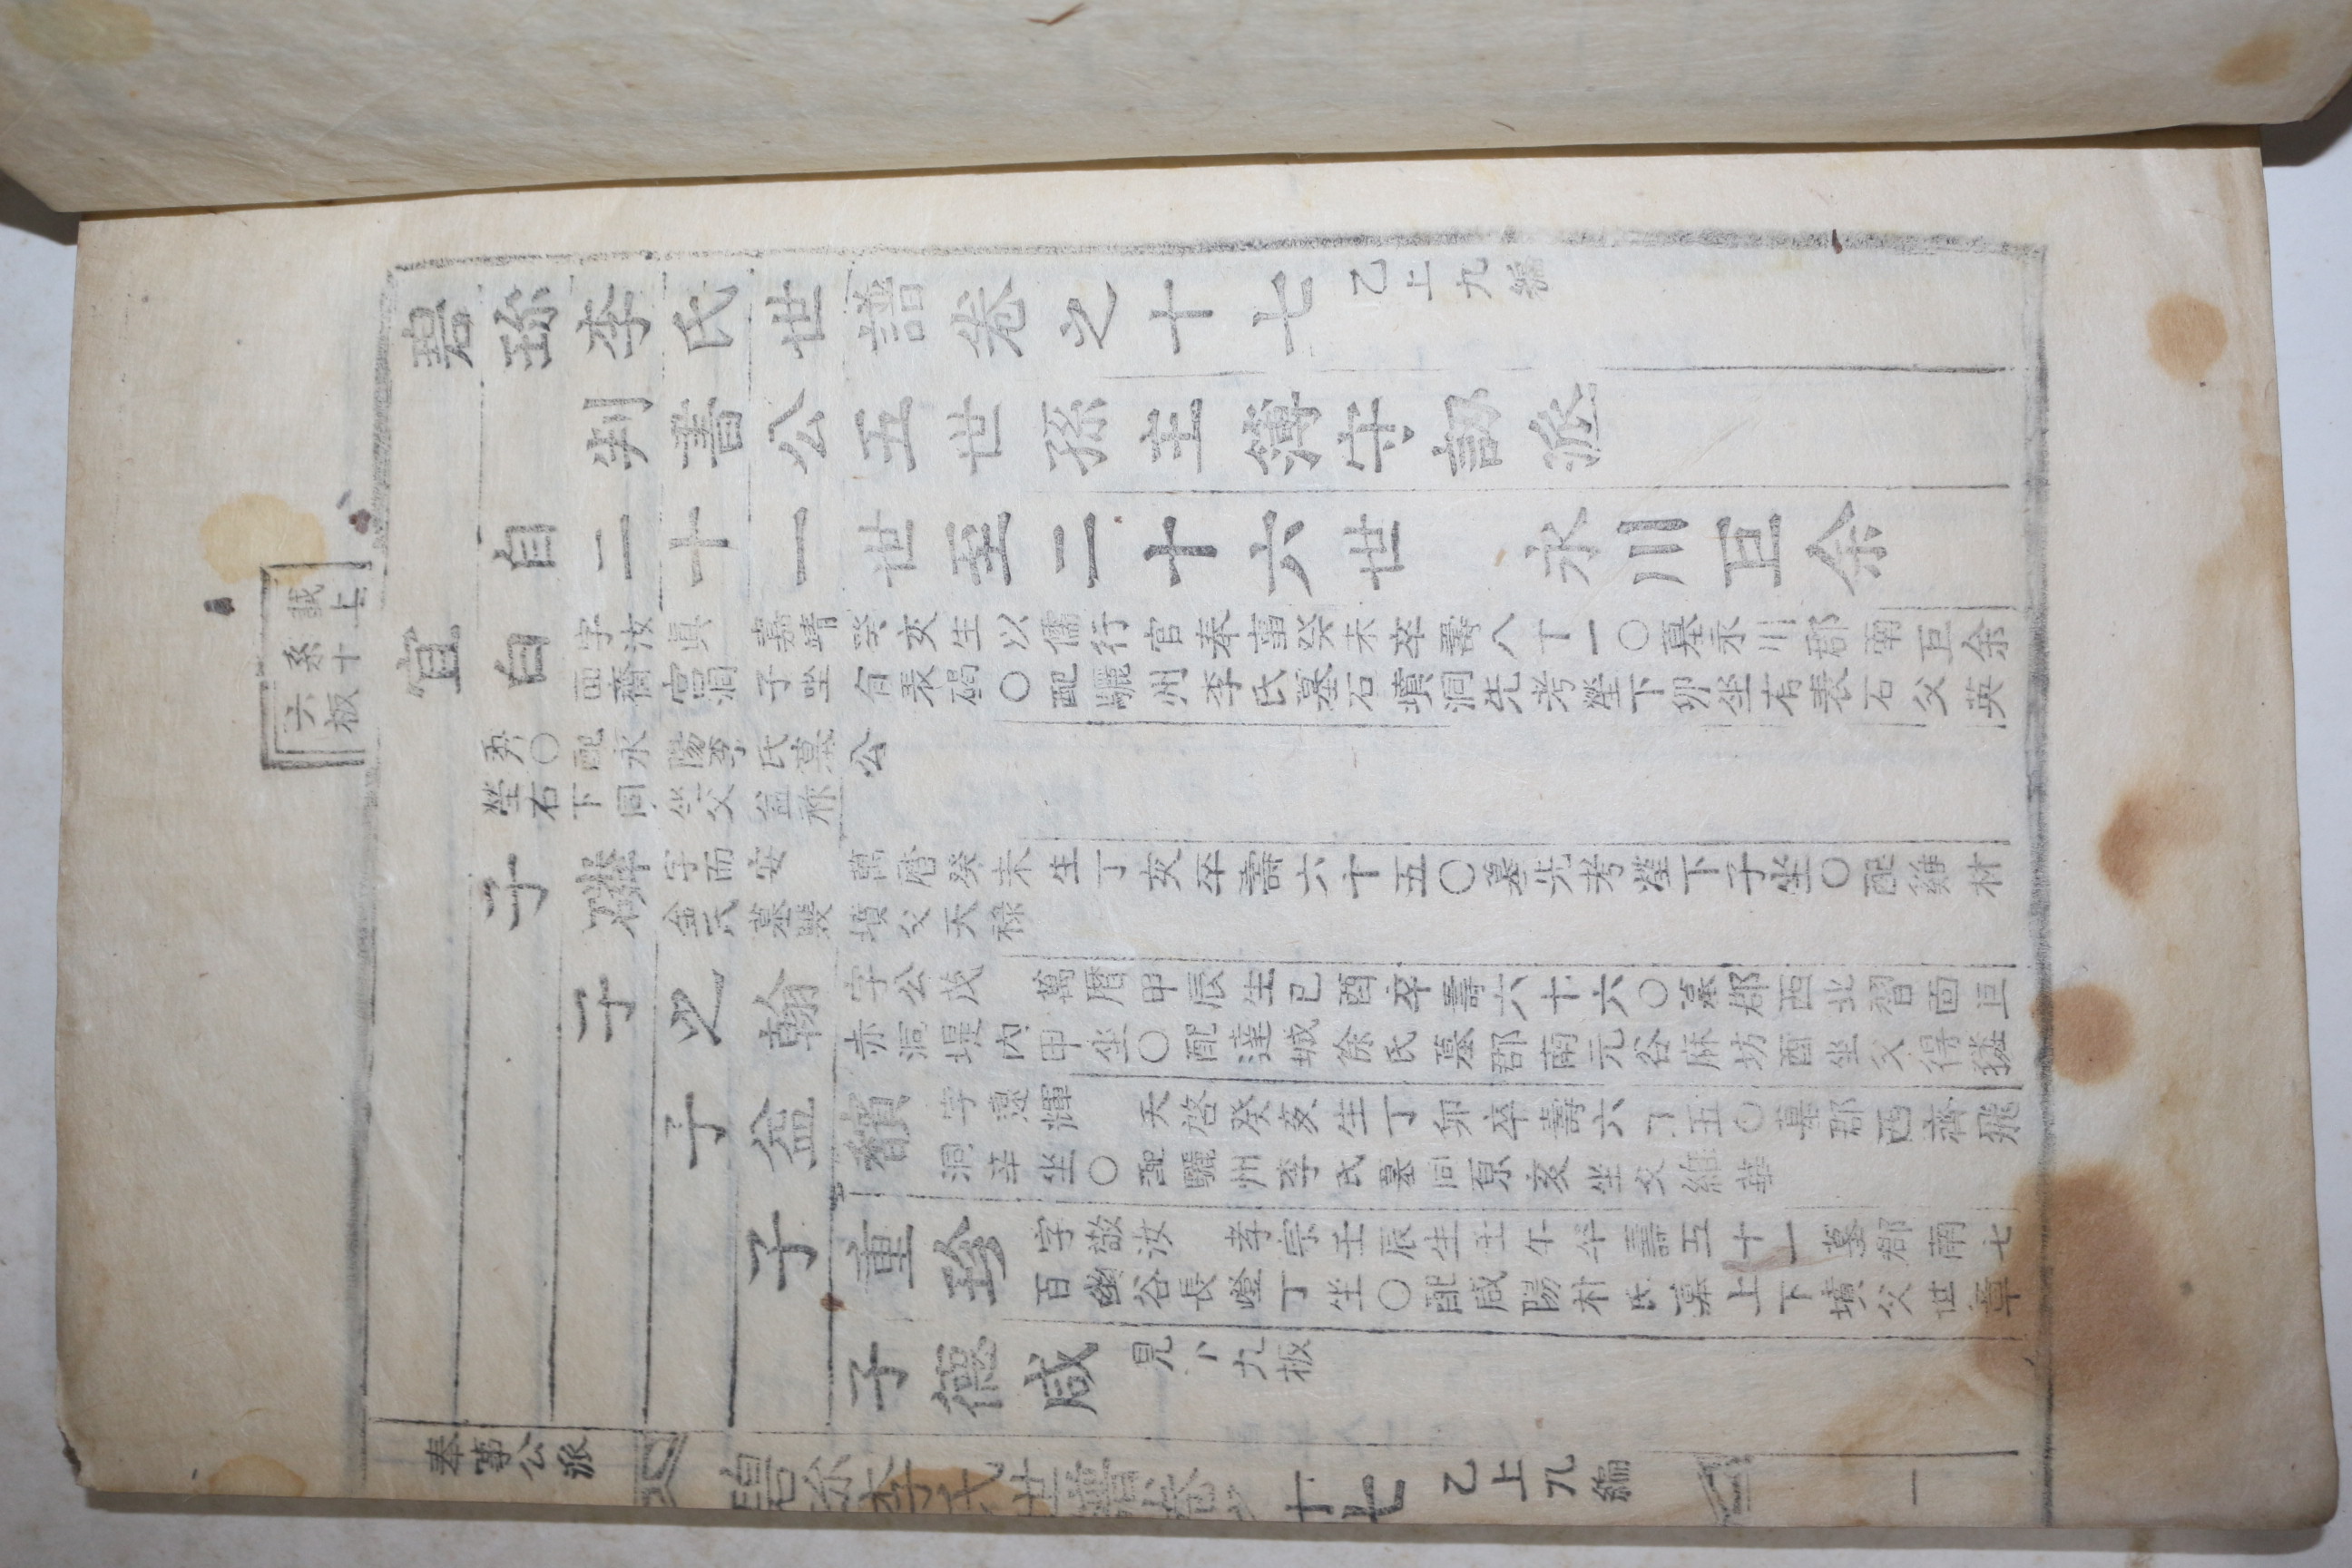 碧珍李氏世譜卷之十七 乙上九編
判書公五世孫主簿守訒派
自二十一世至二十六世 永川巨余
誠上
系十
六板
宜白 字汝眞 嘉靖癸亥生以儒行官奉事癸未卒壽八十一〇墓永川郡南巨余
面齊宮洞子坐有表碣〇配驪州李氏墓石墳洞先考塋下卯坐有表石父英
秀〇配永陽李氏墓公
塋右下同坐父益祢
子 字而安 萬曆癸未生丁亥卒壽六十五〇墓先考塋下子坐〇配雞林
金氏墓雙墳父天祿
子之翰 字公茂 萬曆甲辰生己酉卒壽六十六〇墓郡西北習面巨
赤洞堤內甲坐〇配達城徐氏墓郡南元谷麻坊酉坐父得
子益馩 字遠輝 天啓癸亥生丁卯卒壽六 五〇墓郡西齊飛
洞辛坐〇配驪州李氏墓同原亥坐父維華
子重珍 字敬汝 孝宗壬辰生壬午卒壽五十一墓郡南七
百幽谷長嶝丁坐〇配咸陽朴氏墓上下墳父世章
子德咸 見下九板
奉事公派 碧珍李氏世譜卷之十七 乙上九編 一